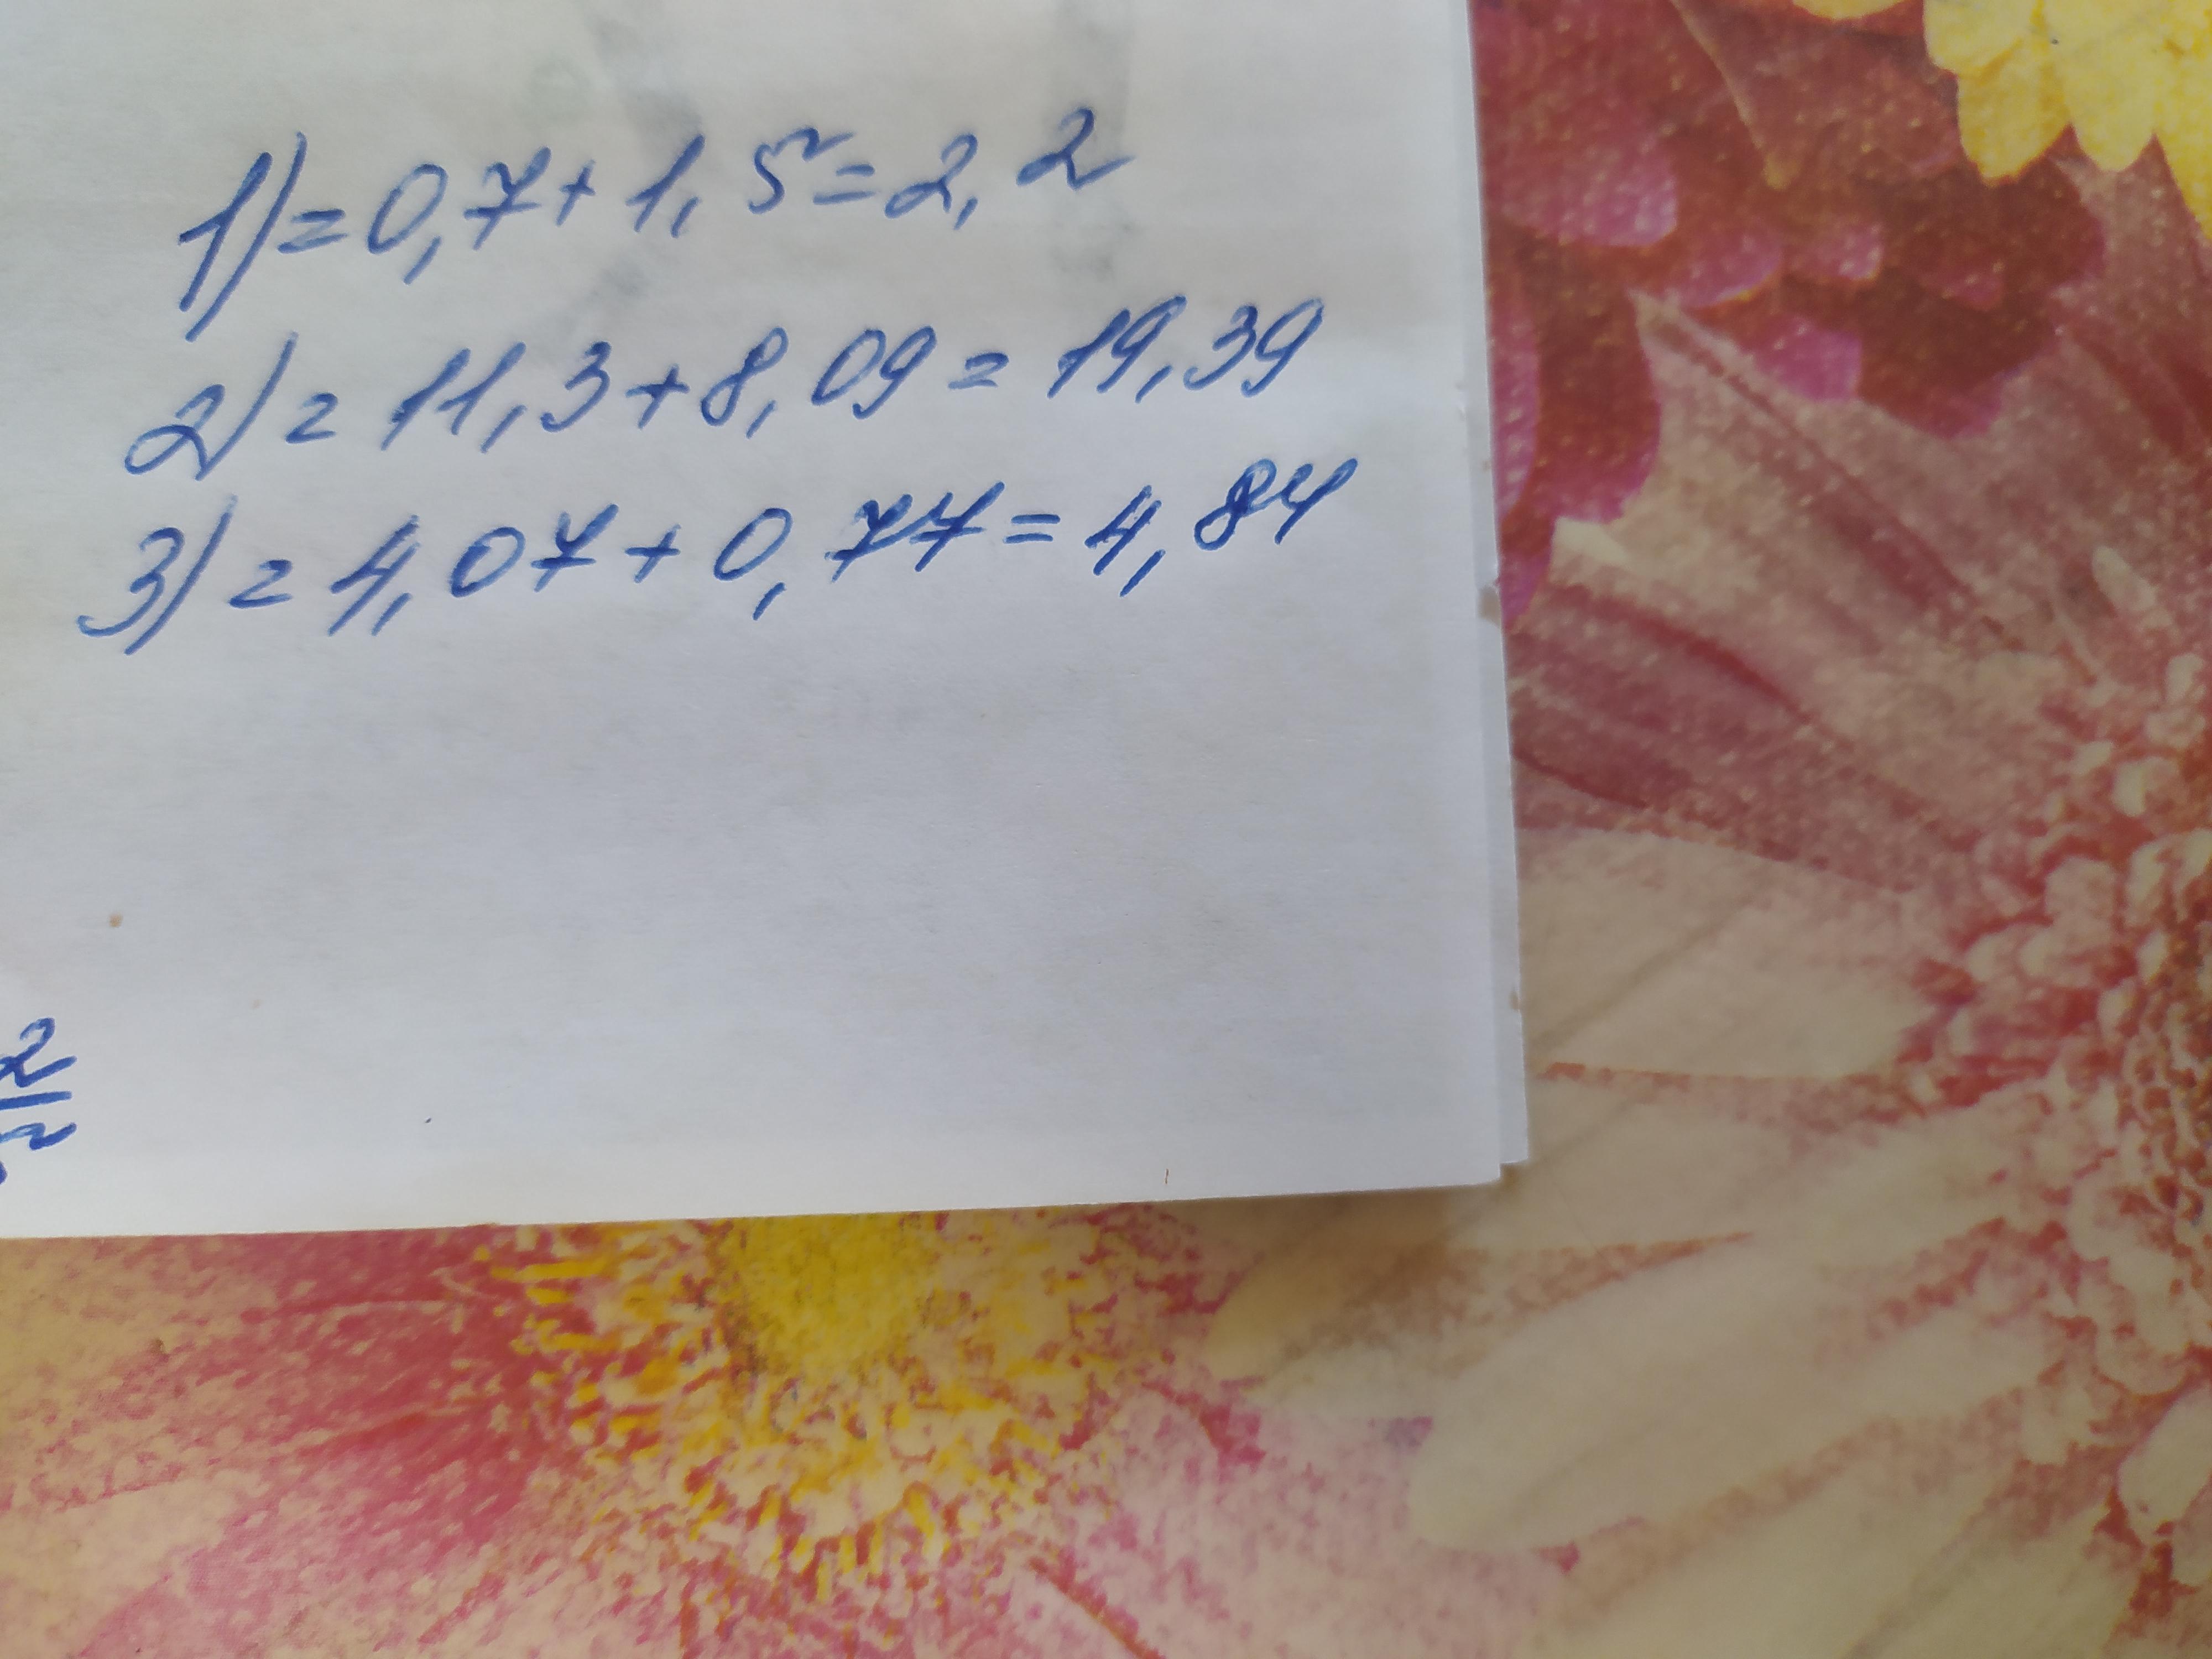 1) = 0,7 + 1,5 = 2,2
2) = 11,3 + 8,09 = 19,39
3) = 4,07 + 0,77 = 4,84